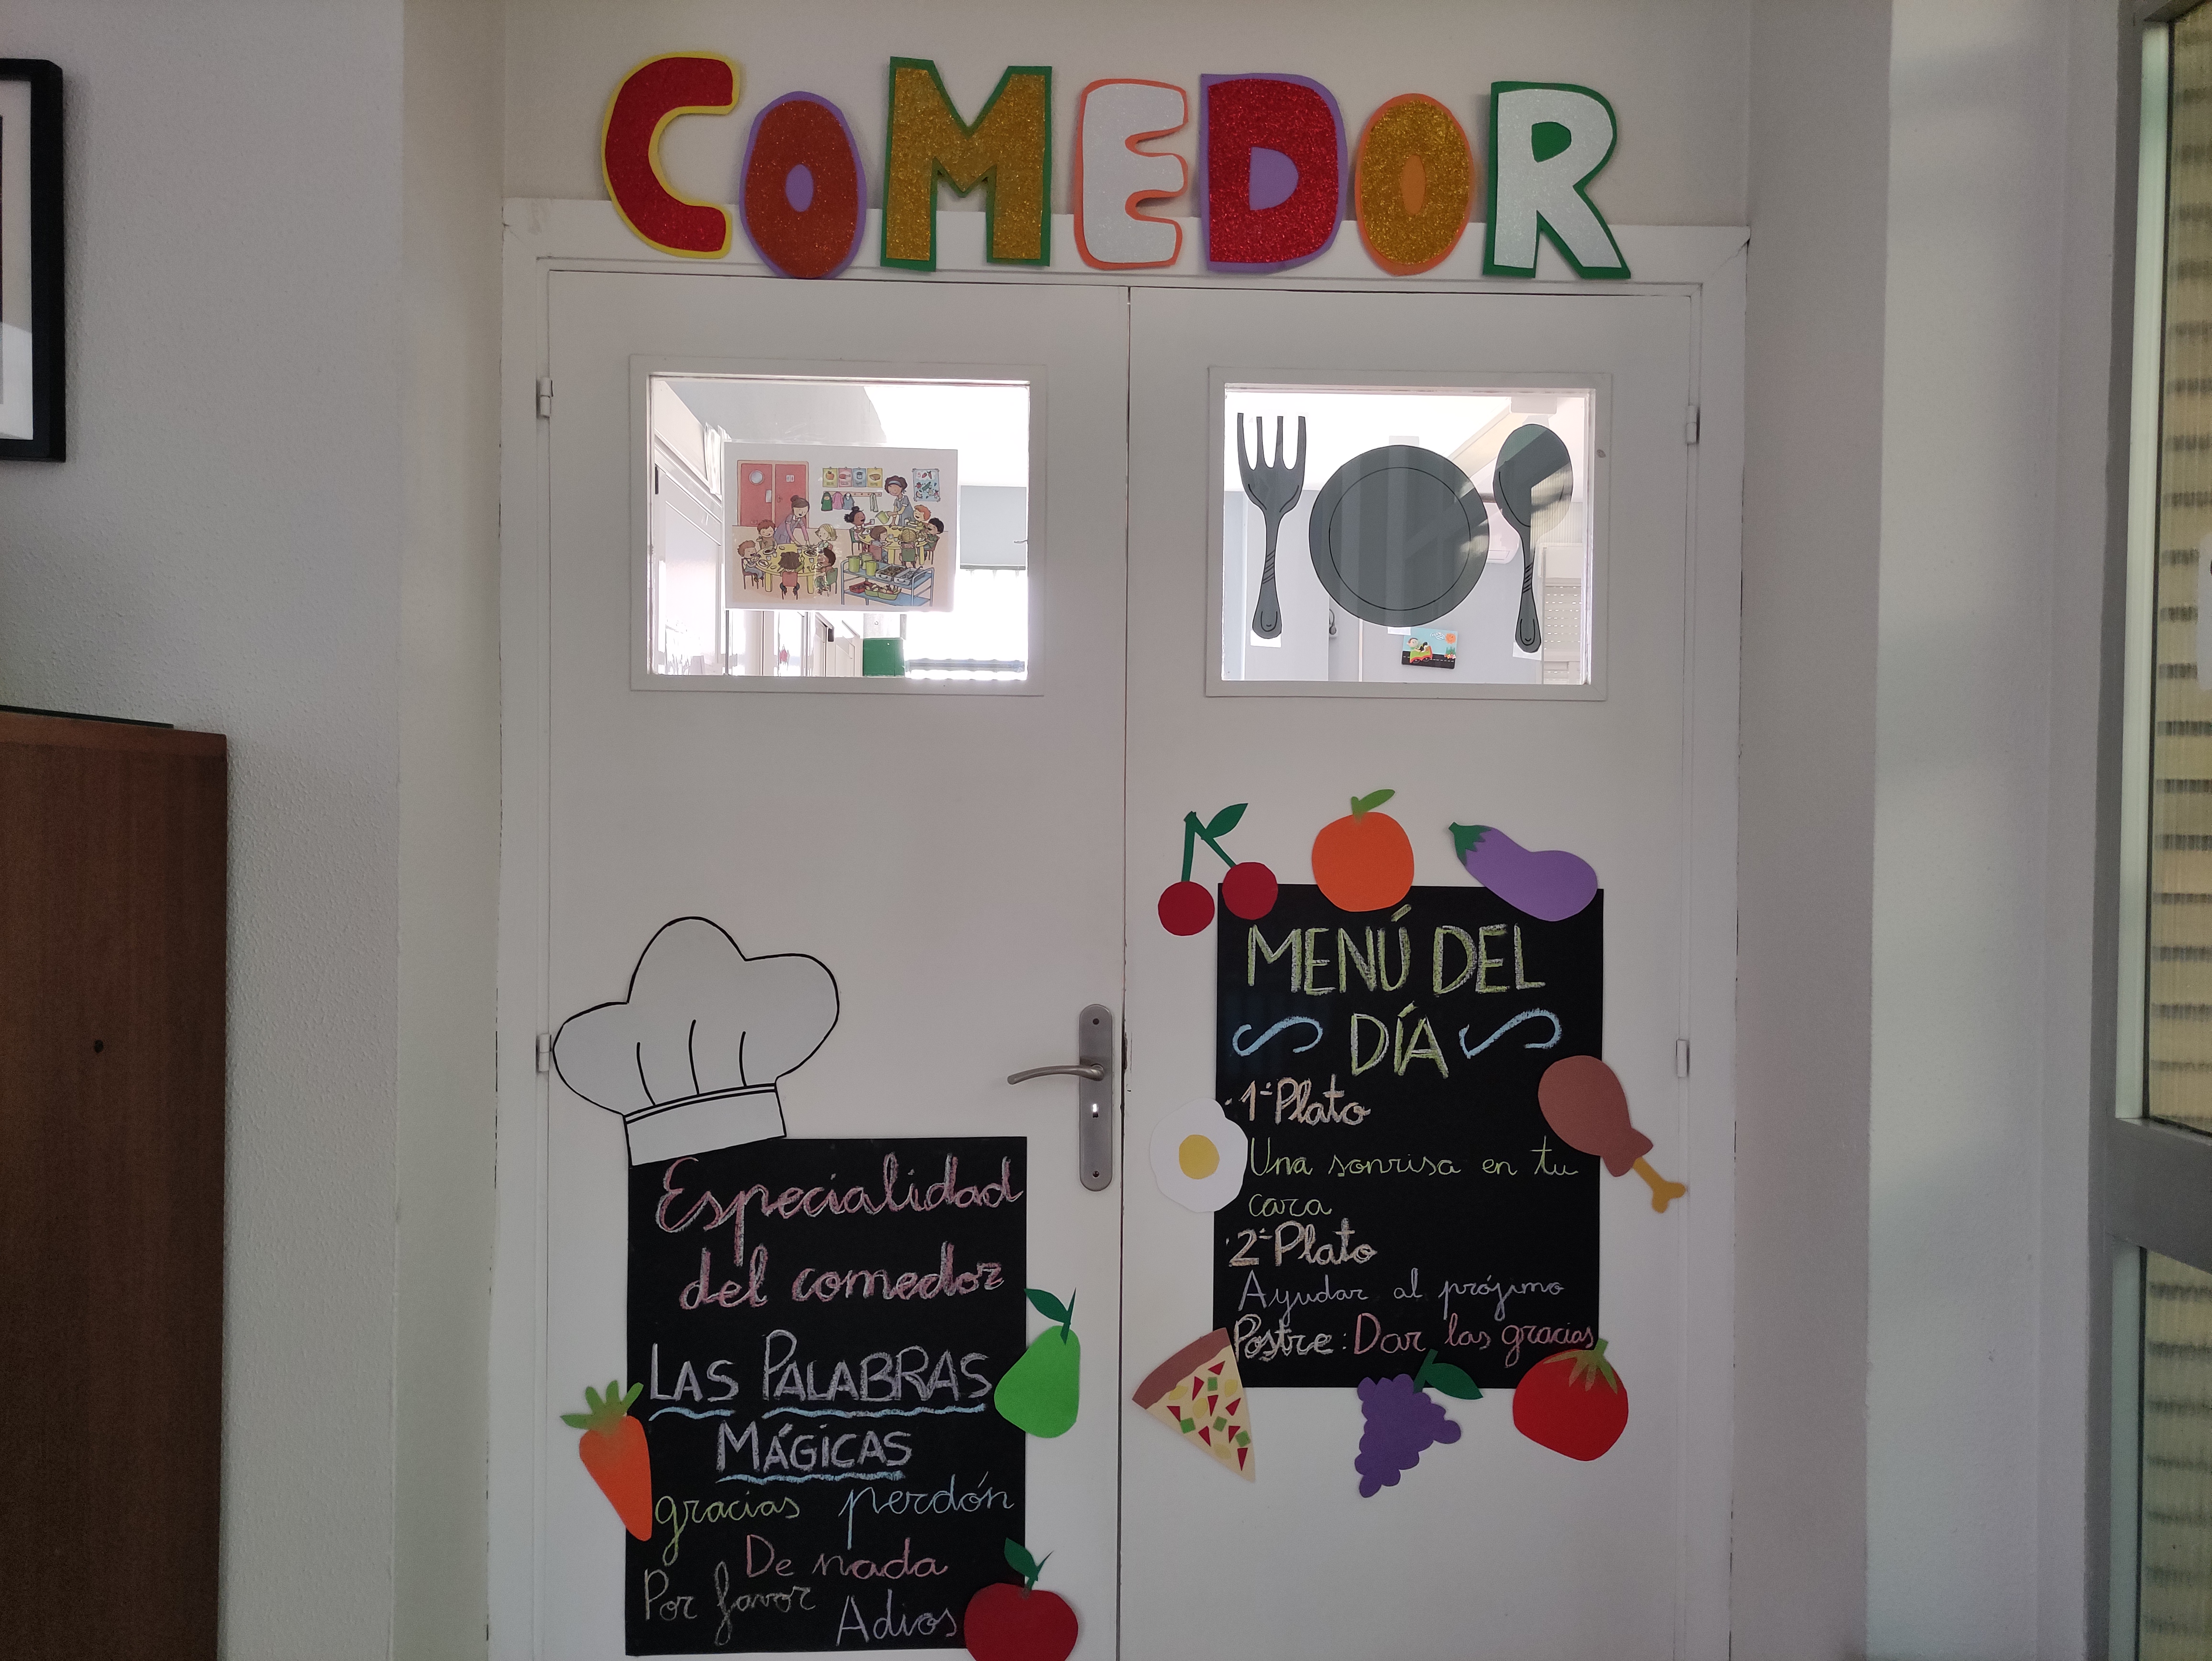 COMEDOR
Especialidad
del comedor
LAS PALABRAS
MÁGICAS
gracias perdón
De nada
Por favor
Adios
MENÚ DEL
DÍA
1º Plato
Una sonrisa en tu
cara
2º Plato
Ayudar al prójimo
Postre: Dar las gracias